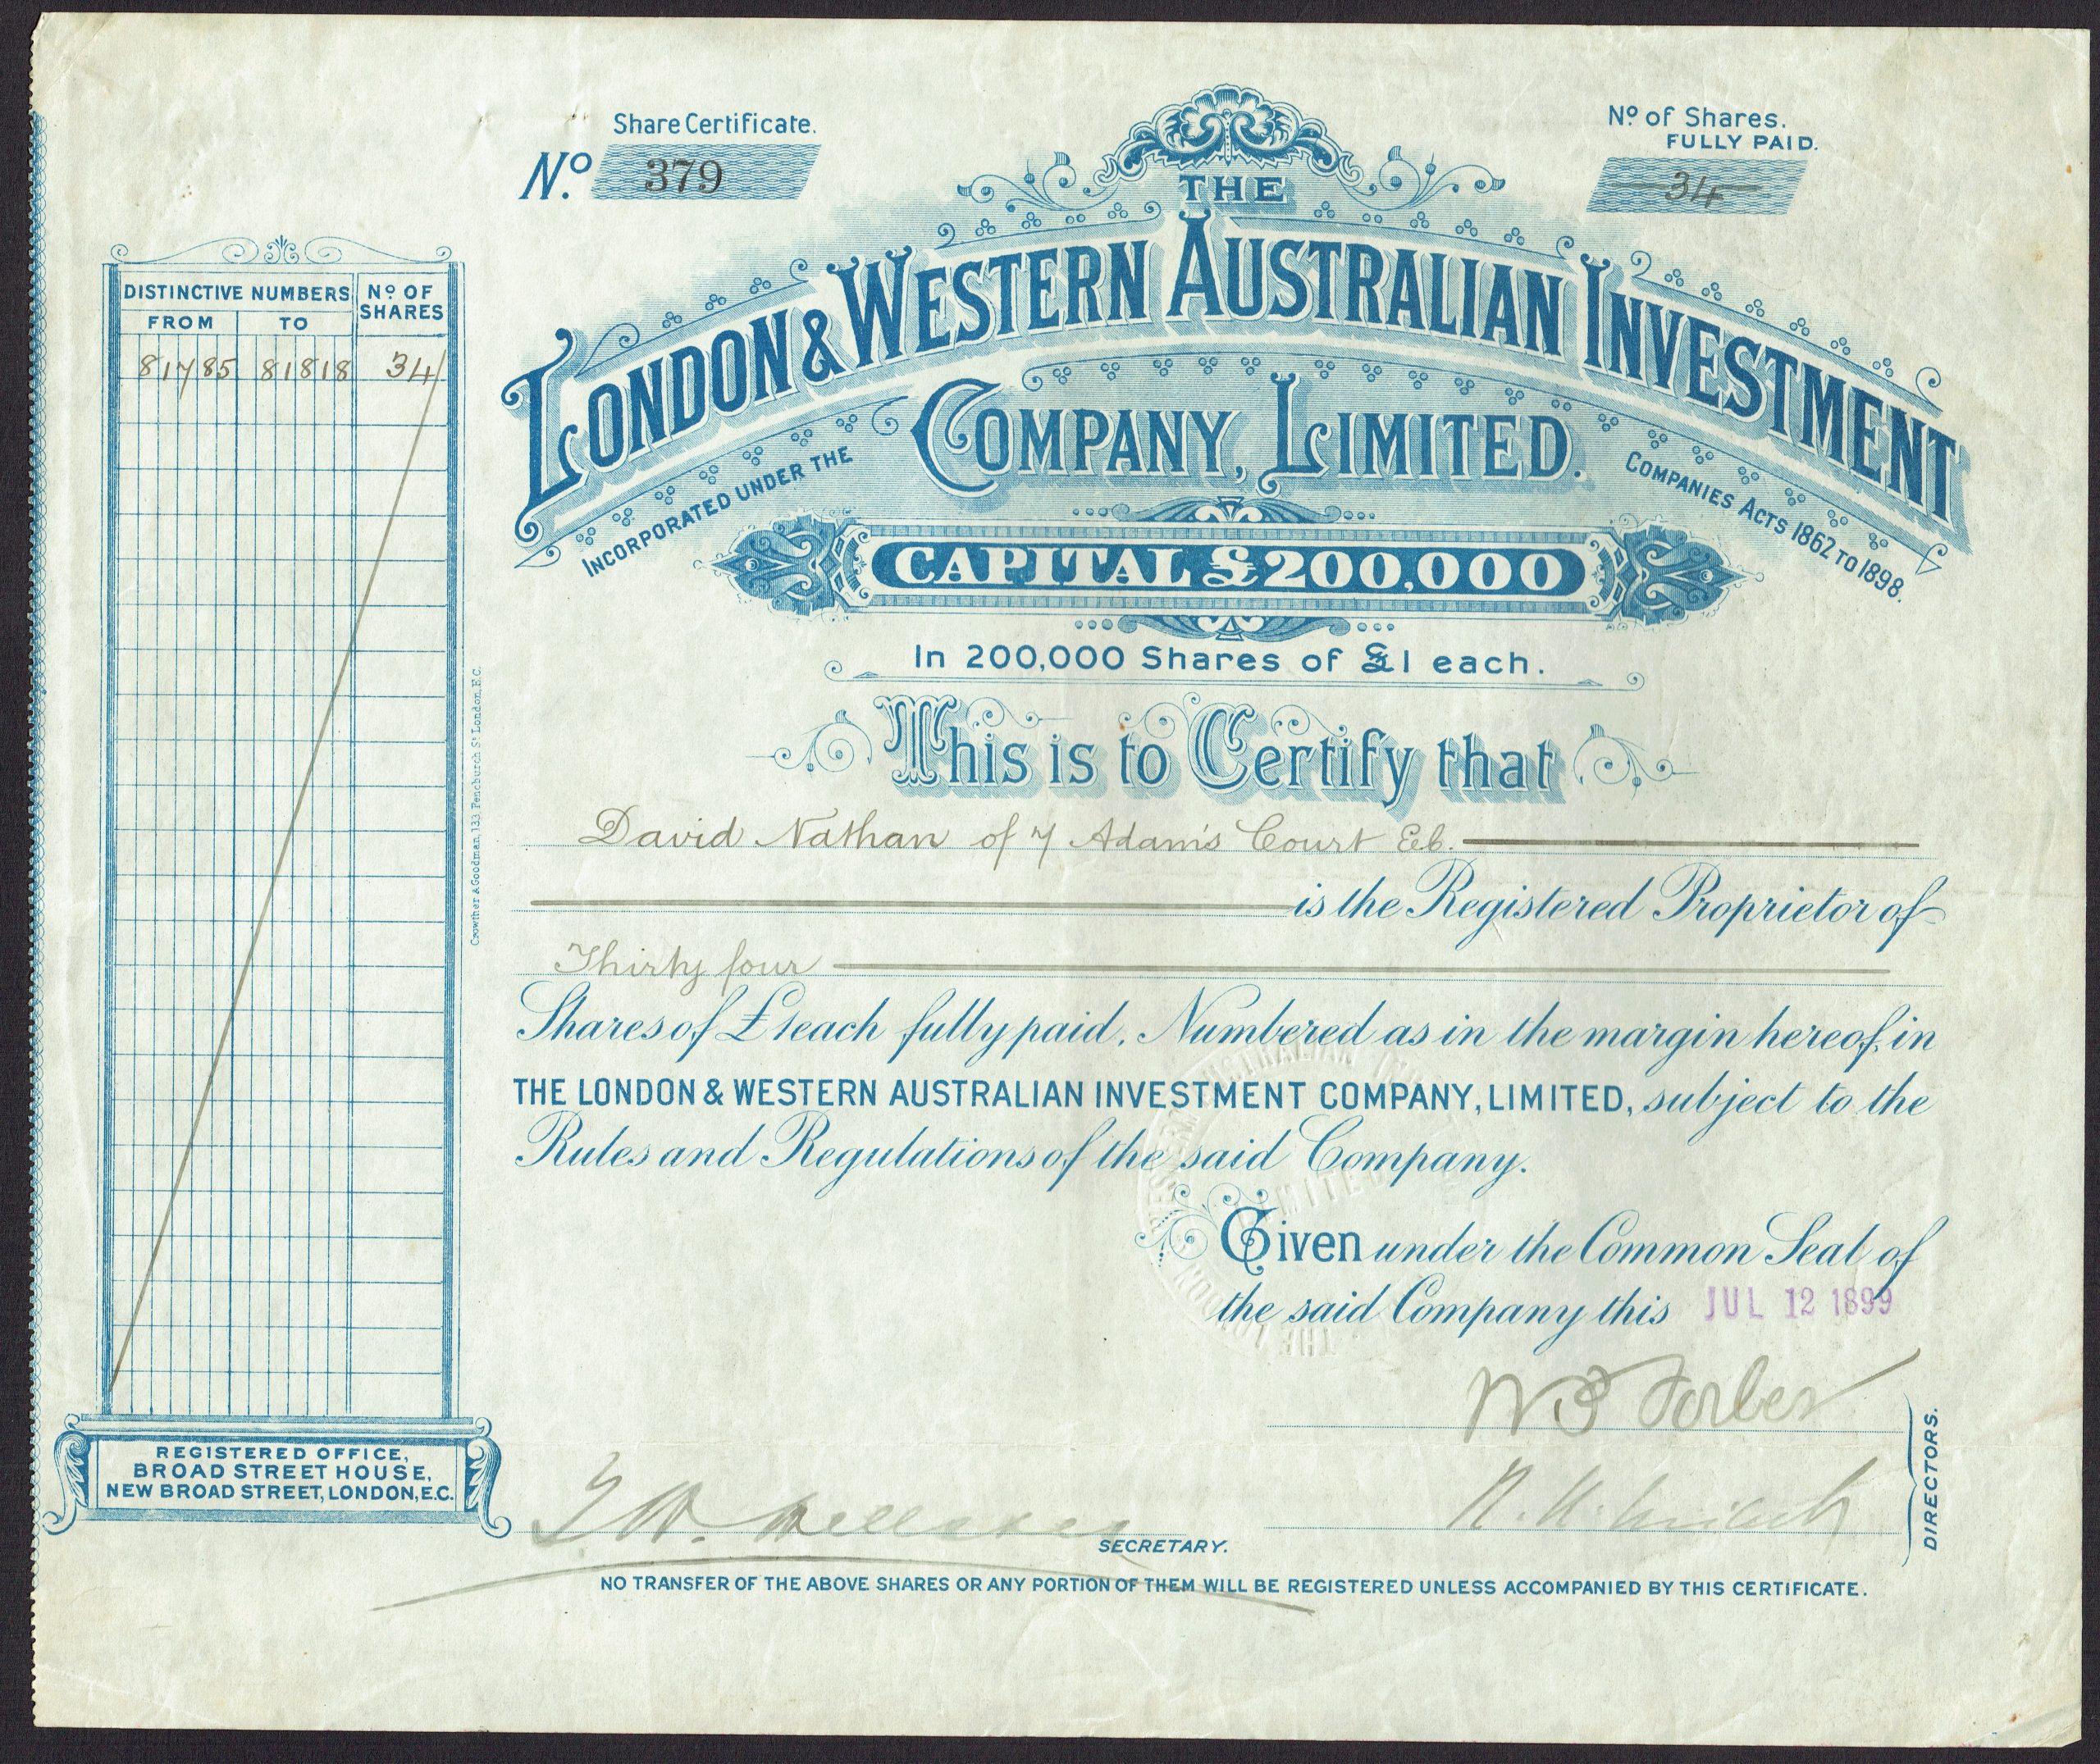 Share Certificate.
No. 379
No. of Shares.
FULLY PAID.
34
THE
LONDON & WESTERN AUSTRALIAN INVESTMENT
COMPANY, LIMITED.
INCORPORATED UNDER THE COMPANIES ACTS 1862 TO 1898.
CAPITAL £200,000
In 200,000 Shares of £1 each.
DISTINCTIVE NUMBERS No. OF SHARES
FROM TO
81785 81818 34
This is to Certify that
David Nathan of 7 Adam's Court E.C.
is the Registered Proprietor of
Thirty four
Shares of £1 each fully paid. Numbered as in the margin hereof, in
THE LONDON & WESTERN AUSTRALIAN INVESTMENT COMPANY, LIMITED, subject to the
Rules and Regulations of the said Company.
Given under the Common Seal of
the said Company this JUL 12 1899
W B Forbes
DIRECTORS.
SECRETARY.
NO TRANSFER OF THE ABOVE SHARES OR ANY PORTION OF THEM WILL BE REGISTERED UNLESS ACCOMPANIED BY THIS CERTIFICATE.
REGISTERED OFFICE,
BROAD STREET HOUSE,
NEW BROAD STREET, LONDON, E.C.
Crowther & Goodman, 133 Fenchurch St London, E.C.